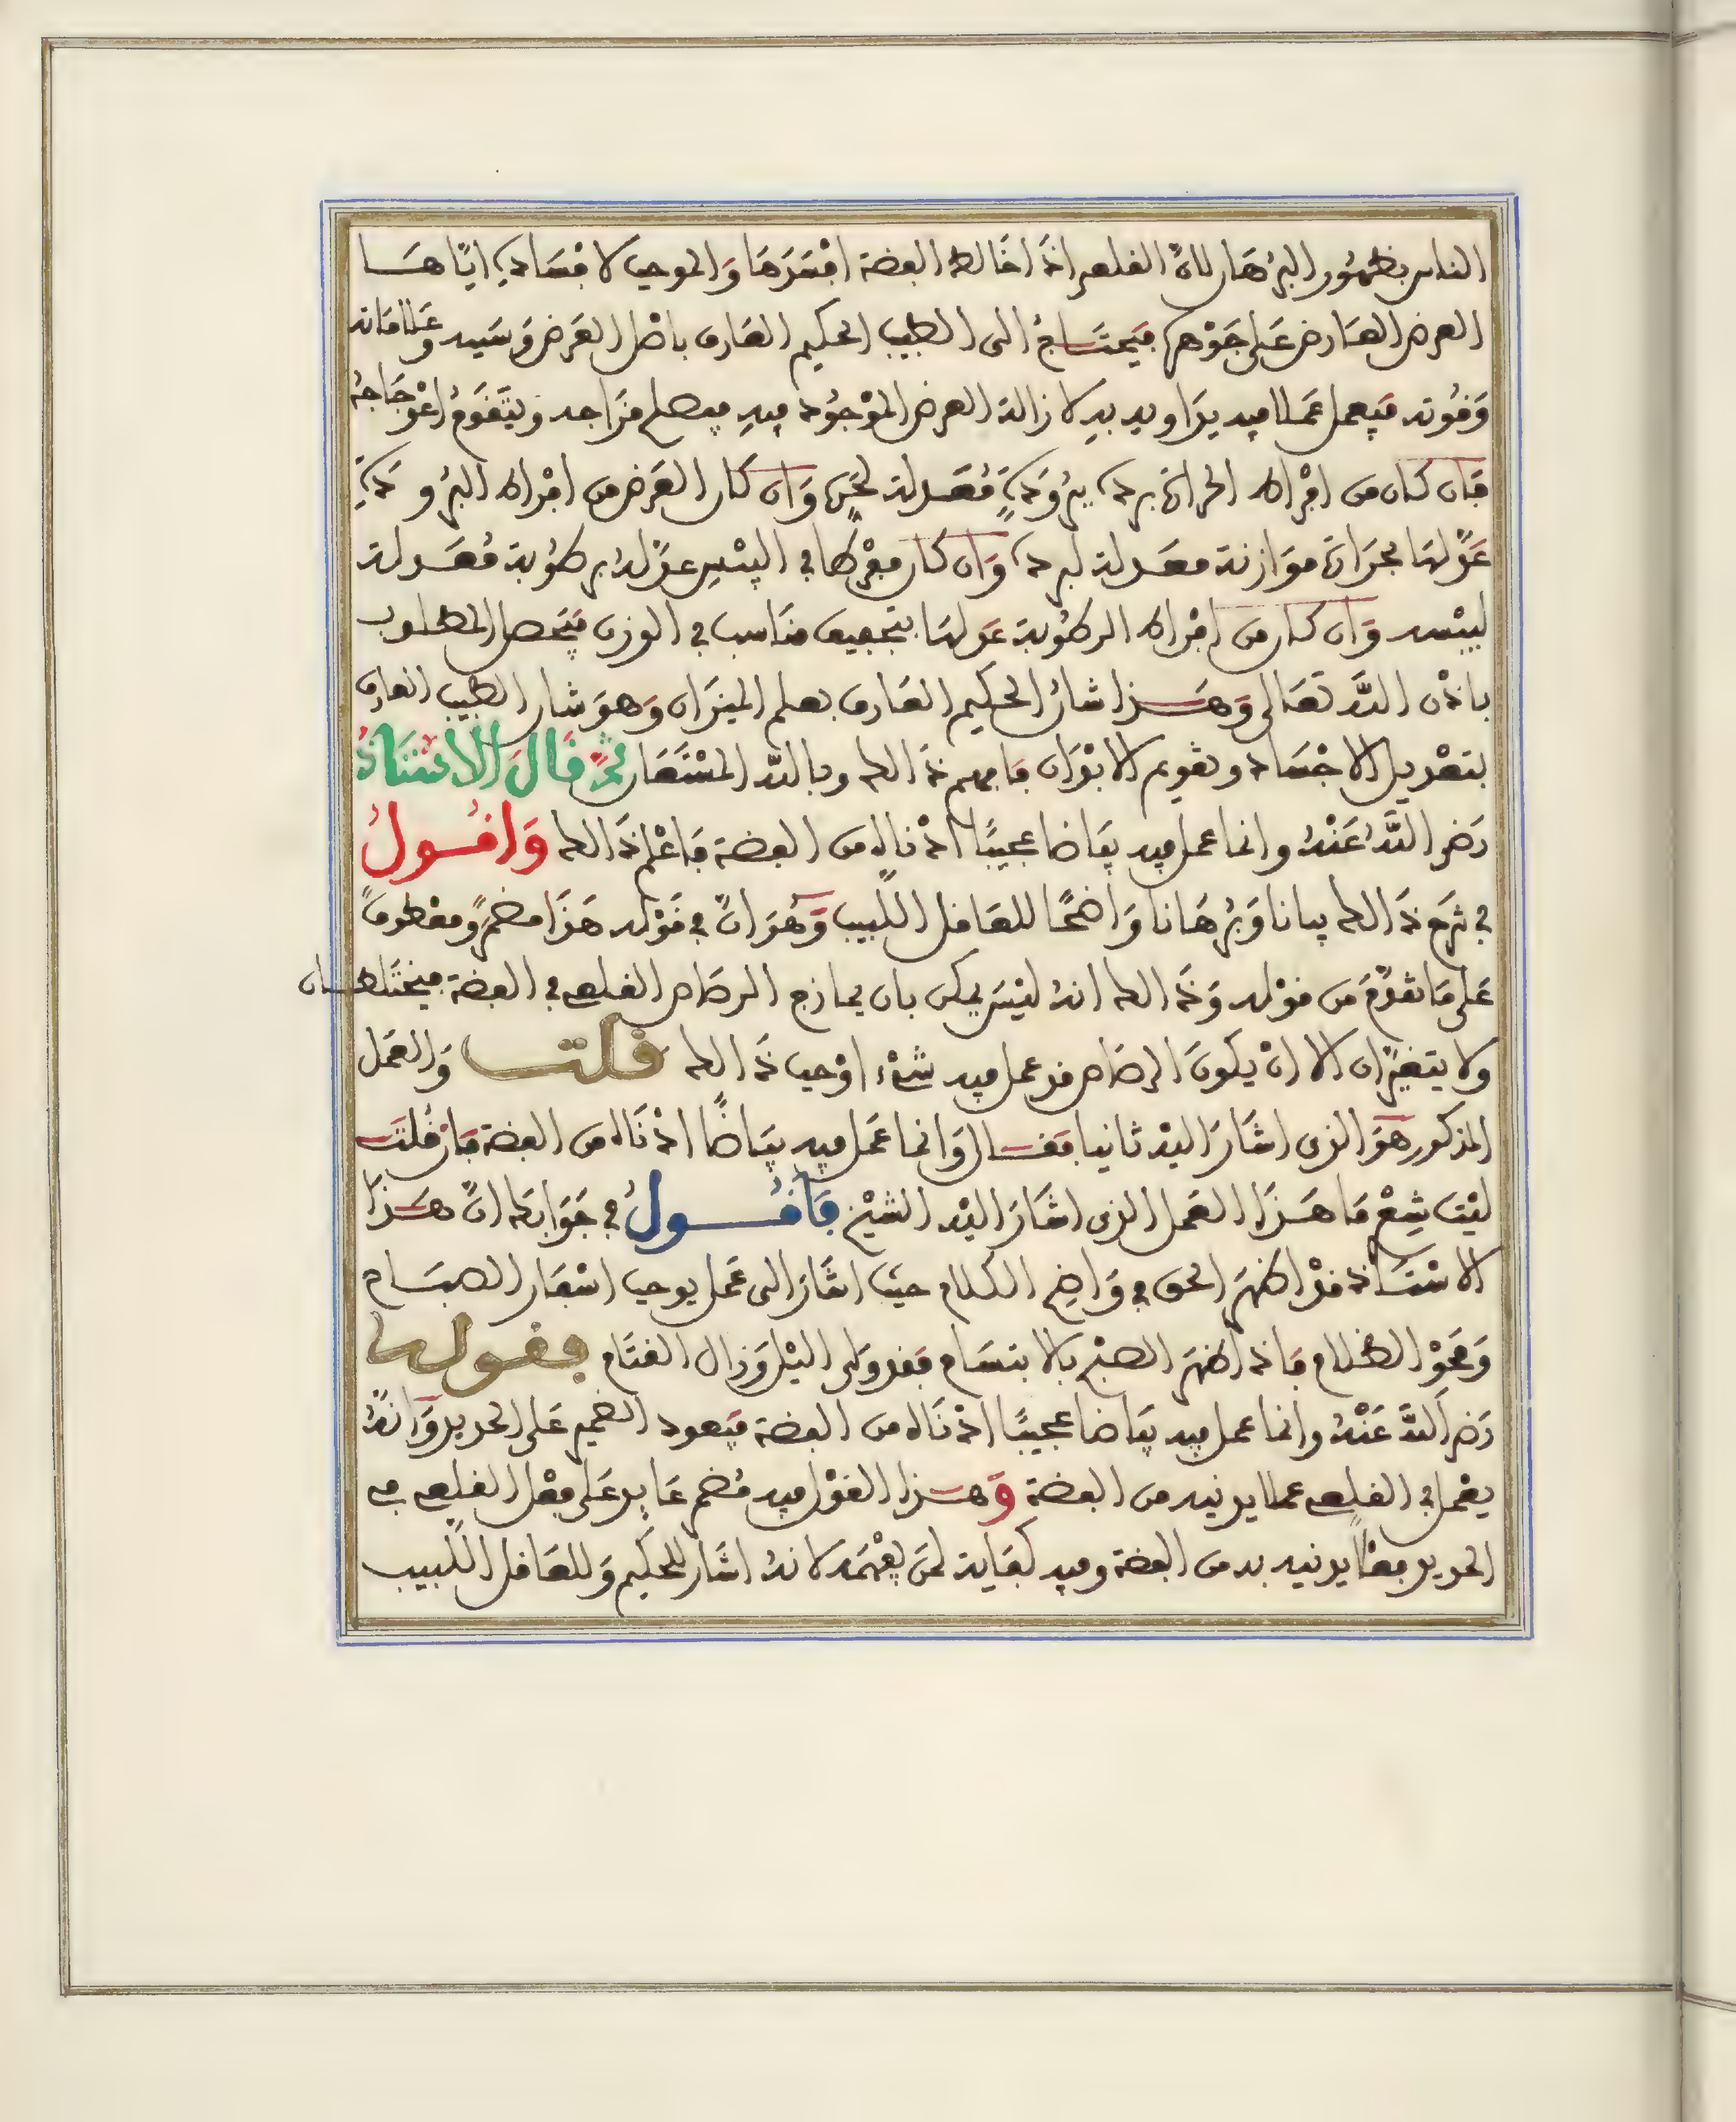 الناس بظهور البرهان لان القلعي اذا خالط الفضة افسدها والموجب لافساده اياها
العرض العارض على جوهره فيحتاج الى الطبيب الحكيم العارف باصل العرض وسببه وعلاماته
وقوته فيعمل عملا فيه يداويه به لازالة العرض الموجود فيه فيصلح مزاجه ويتقوم اعوجاجه
فان كان من افراط الحرارة برده ببرودة معدلة لحره وان كان العرض من افراط البرودة
عدلها بحرارة موازنة معدلة لبرده وان كان مفرطا في اليبس عدله برطوبة معدلة
ليبسه وان كان من افراط الرطوبة عدلها بتجفيف مناسب في الوزن فيحصل المطلوب
باذن الله تعالى وهذا شان الحكيم العارف بعلم الميزان وهو شان الطبيب العارف
بتعديل الاجساد وتقويم الابدان فافهم ذالك وبالله المستعان ثم قال الاستاذ
رضي الله عنه وانما عمل فيه بياضا عجيبا اذ ناله من الفضة فاعلم ذالك واقول
في شرح ذالك بيانا وبرهانا واضحا للعاقل اللبيب وهو ان في قوله هذا مضمر ومعطوف
على ما تقدم من قوله وذالك انه ليس يمكن بان يمازج الرصاص القلعي في الفضة فيختلطان
ولا يتغيران الا ان يكون الرصاص قد عمل فيه شيء اوجب ذالك قلت والعمل
المذكور هو الذي اشار اليه ثانيا فقال وانما عمل فيه بياضا اذ ناله من الفضة فان قلت
ليت شعري ما هذا العمل الذي اشار اليه الشيخ فاقول في جوابك ان هذا
الاستاذ قد اظهر الحق في واضح الكلام حيث اشار الى عمل يوجب اسفار الصباح
ومحو الظلام فاذا اظهر الصبح بالابتسام فقد ولى اليل وزال القتام بقوله
رضي الله عنه وانما عمل فيه بياضا عجيبا اذ ناله من الفضة فيعود الضمير على الحديد وانه
يفعل في القلعي عملا يدنيه من الفضة وهذا القول فيه مضمر عايد على فعل القلعي في
الحديد فعلا يدنيه به من الفضة وفيه كفاية لمن يفهمه لانه اشار للحكيم وللعاقل اللبيب